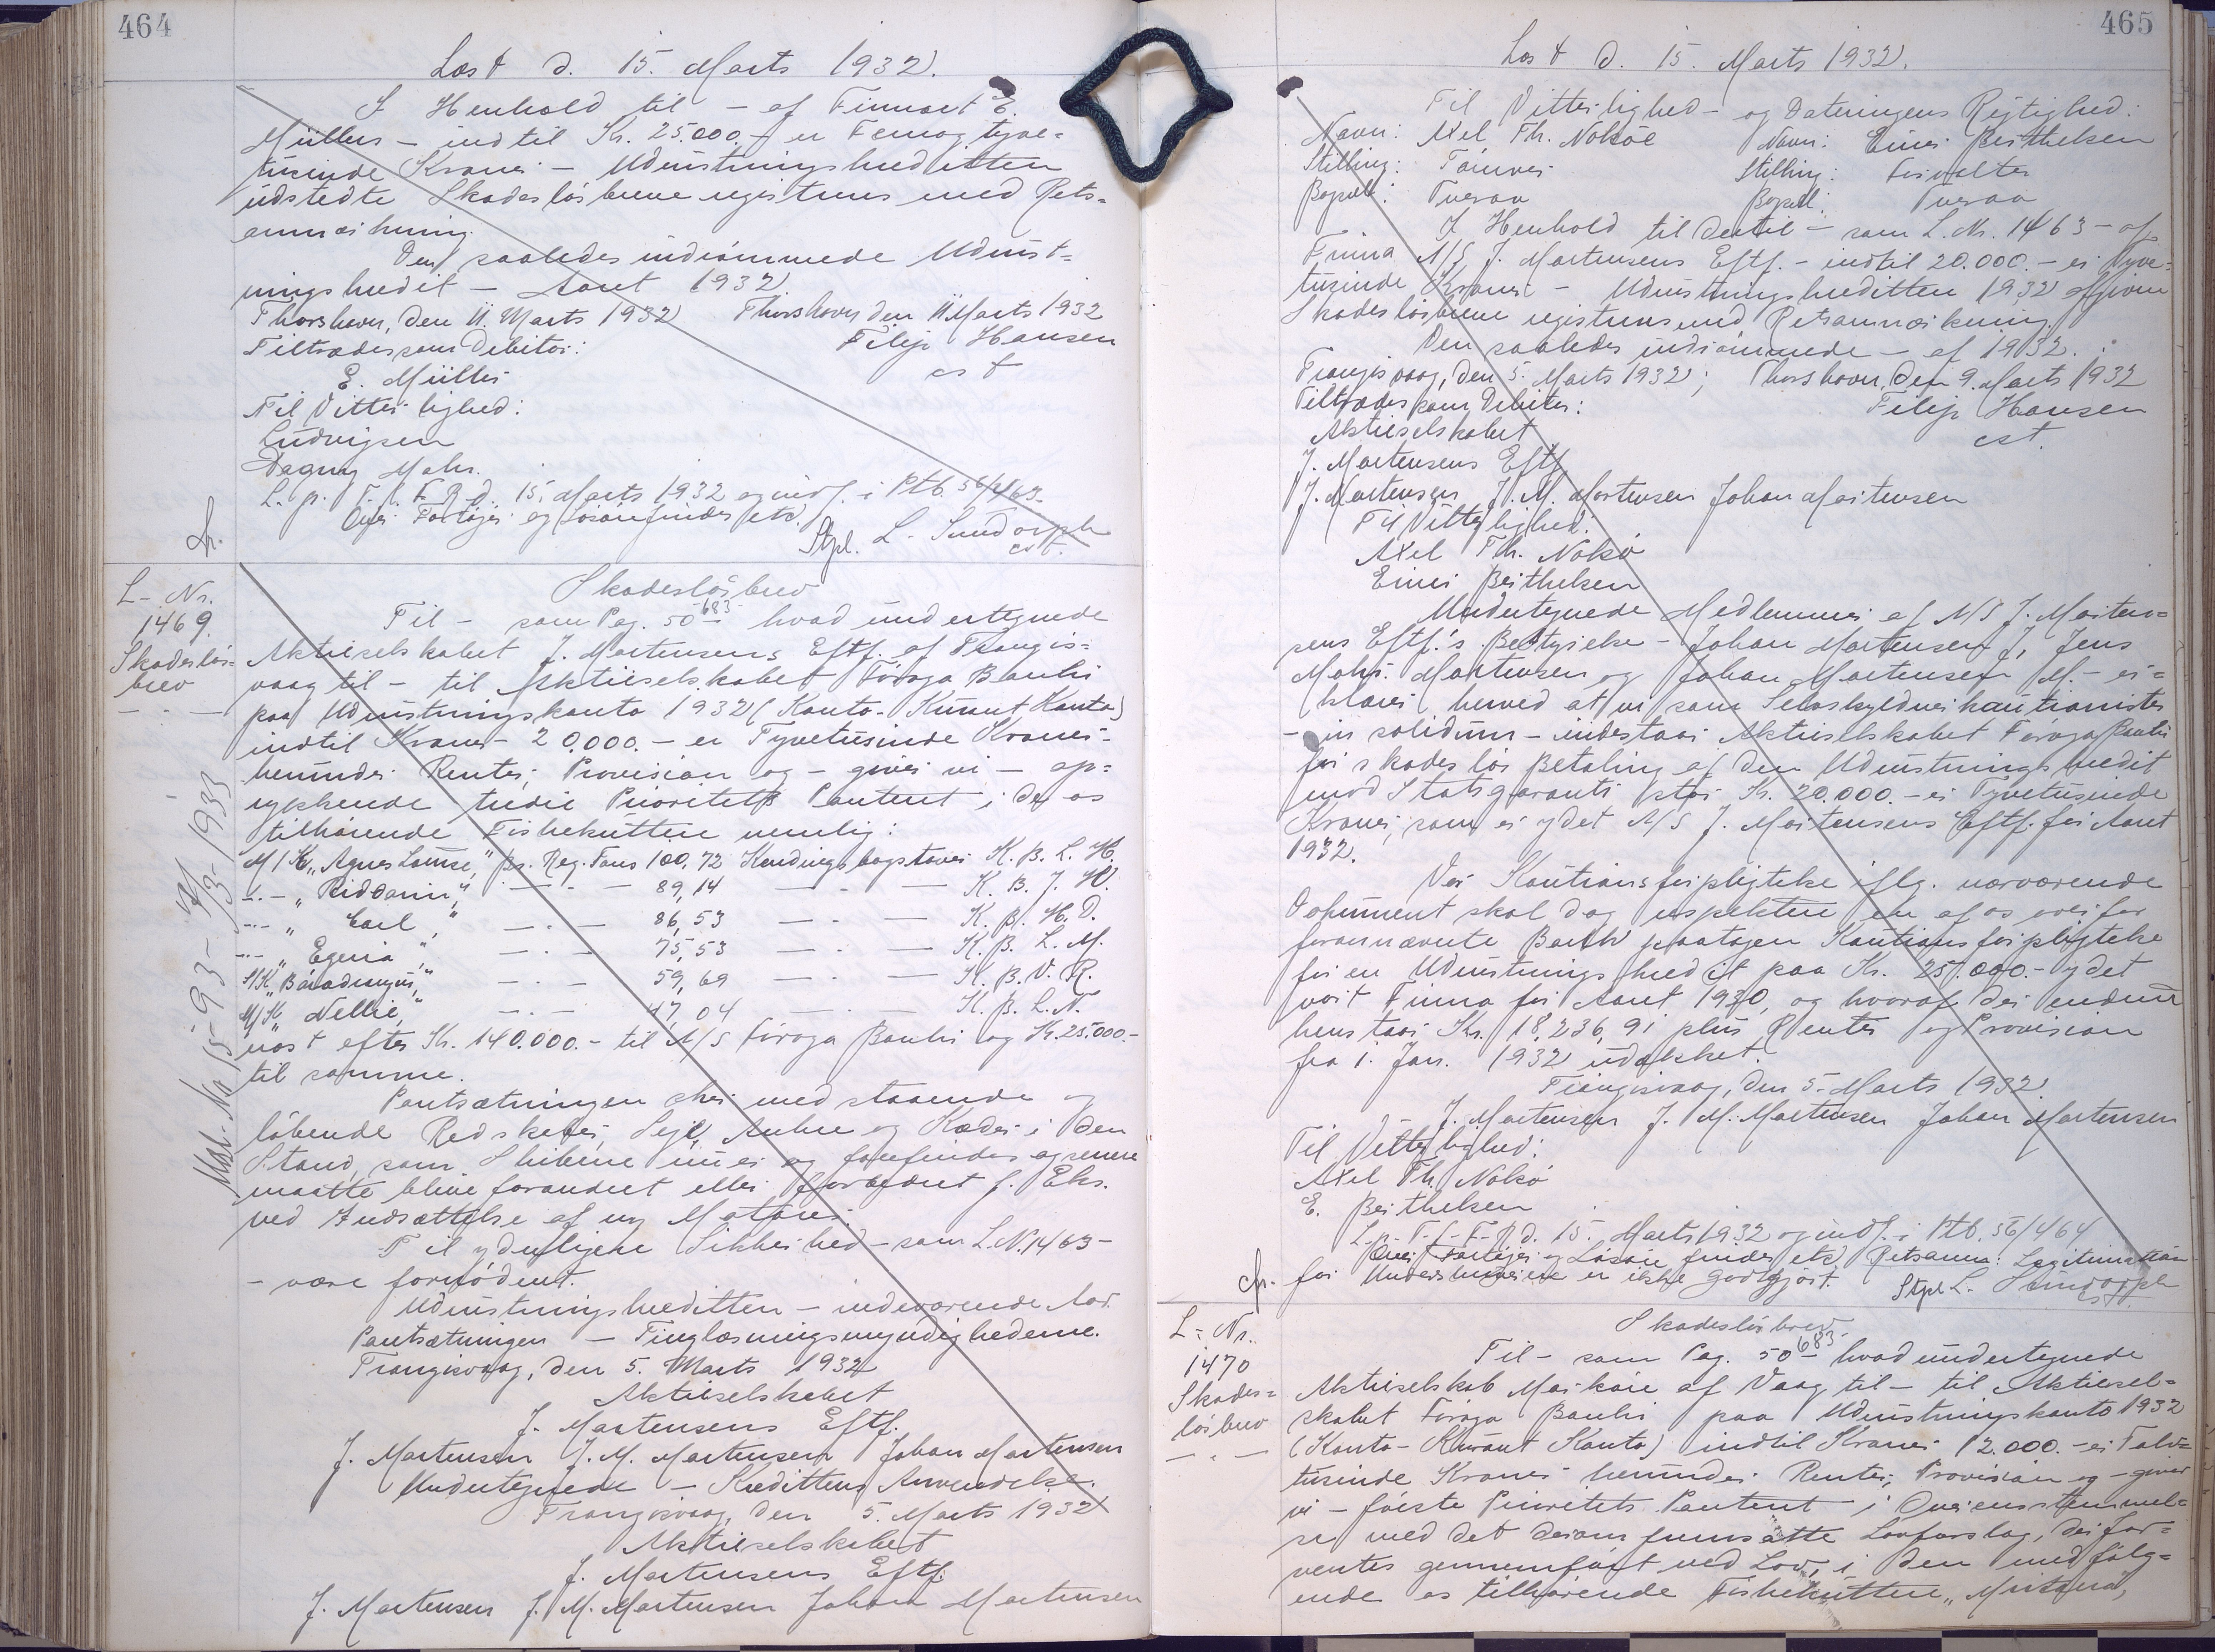 464
Læst d. 15. Marts 1932.
I Henhold til - af Firmaet E.
Müllers - indtil Kr. 25.000.- er Femogtyve=
tusinde Kroner - Udrustningskreditten
udstedte Skadesløsbreve registreres med Rets=
anmærkning.
Den saaledes indrømmede Udrust=
ningskredit - Aaret 1932.
Thorshavn, den 11. Marts 1932 Thorshavn den 11 Marts 1932
Tiltrædes som Debitor: Filip Hansen
E. Müller cst
Til Vitterlighed:
Ludvigsen
Dagny Mohr.
L. p. T. f. F. R. d. 15. Marts 1932 og indf. i Ptb. 56/463.
Over Fartøjer og Løsøre findes etc.
Stpl. L. Sundorph
cst.
L-Nr.
1469.
Skadesløs=
brev
Skadesløsbrev
Til - som Pag. 50 683 hvad undertegnede
Aktieselskabet J. Mortensens Eftf. af Trangis=
vaag til - til Aktieselskabet Føroya Banki
paa Udrustningskonto 1932 (Konto-Kurant Konto)
indtil Kroner 20.000.- er Tyvetusinde Kroner-
herunder Renter, Provision og - giver vi - op=
rykkende tredie Prioritets Panteret i de os
tilhørende Fiskekuttere nemlig:
M/K „Agnes Louise," Br. Reg. Tons 100,72 Kendingsbogstaver K. B. L. H.
-.- „Riddarin," -.- 89,14 -.- K. B. J. W.
-.- „Carl," -.- 86,53 -.- K. B. H. D.
-.- „Egeria," -.- 75,53 -.- K. B. L. M.
S/K „Báradengur," -.- 59,69 -.- K. B. V. R.
M/K „Nellie," -.- 47,04 -.- K. B. L. N.
næst efter Kr. 140.000.- til A/S Føroya Banki og Kr. 25.000.-
til samme.
Pantsætningen sker med staaende og
løbende Redskaber, Sejl, Ankre og Kæder i den
Stand, som Skibene nu er og forefindes og senere
maatte blive forandret eller forbedret f. Eks.
ved Indsættelse af ny Motorer.
Til yderligere Sikkerhed - som L. Nr. 1463 -
- være fornødent.
Udrustningskreditten - indeværende Aar.
Pantsætningen - Tinglæsningsmyndighederne.
Trangisvaag, den 5. Marts 1932
Aktieselskabet
J. Mortensens Eftf.
J. Mortensen J. M. Mortensen Johan Mortensen
Undertegnede - Kredittens Anvendelse.
Trangisvaag, den 5. Marts 1932
Aktieselskabet
J. Mortensens Eftf.
J. Mortensen J. M. Mortensen Johan Mortensen
465
Læst d. 15. Marts 1932.
Til Vitterlighed - og Dateringens Rigtighed:
Navn: Axel Th. Nolsøe Navn: Einer Berthelsen
Stilling: Tømrer Stilling: Forvalter
Bopæl: Tveraa Bopæl: Tveraa
I Henhold til dertil - som L. Nr. 1463 - af
Firma A/S J. Mortensens Eftf. - indtil 20.000.- er Tyve=
tusinde Kroner - Udrustningskreditten 1932 afgiven
Skadesløsbreve registreres med Retsanmærkning.
Den saaledes indrømmede - af 1932.
Trangisvaag, den 5. Marts 1932; Thorshavn, den 9. Marts 1932
Tiltrædes som Debitor: Filip Hansen
Aktieselskabet cst.
J. Mortensens Eftf.
J. Mortensen J. M. Mortensen Johan Mortensen
Til Vitterlighed:
Axel Th. Nolsø
Einer Berthelsen
Undertegnede Medlemmer af A/S J. Morten=
sens Eftf.'s Bestyrelse - Johan Mortensen J, Jens
Mohr. Mortensen og Johan Mortensen M. - er=
klærer herved at vi som Selvskyldnerkautionister
- in solidum - indestaar Aktieselskabet Føroya Banki
for skadesløs Betaling af den Udrustningskredit
mod Statsgaranti stor Kr. 20.000.- er Tyvetusinde
Kroner, som er ydet A/S J. Mortensens Eftf. for Aaret
1932.
Vor Kautionsforpligtelse iflg. nærværende
Dokument skal dog respektere en af os overfor
forannævnte Bank paatagen Kautionsforpligtelse
for en Udrustningskredit paa Kr. 25.000.- ydet
vort Firma for Aaret 1930, og hvoraf der endnu
henstaar Kr. 18,236,91 plus Renter og Provision
fra 1. Jan. 1932 udækket.
Trangisvaag, den 5. Marts 1932.
J. Mortensen J. M. Mortensen Johan Mortensen
Til Vitterlighed:
Axel Th. Nolsø
E. Berthelsen
L. p. T. f. F. R. d. 15. Marts 1932 og indf. i Ptb. 56/464
Over Fartøjer og Løsøre findes etc. Retsanm: Legitimation
for Underskriverne er ikke godtgjort. Stpl. L. Sundorph
cst.
L-Nr.
1470
Skades=
løsbrev
Skadesløsbrev.
Til - som Pag. 50 683 hvad undertegnede
Aktieselskab Morkøre af Vaag til - til Aktiesel=
skabet Føroya Banki paa Udrustningskonto 1932
(Konto-Kurant Konto) indtil Kroner 12.000.- er Tolv=
tusinde Kroner herunder Renter, Provision og - giver
vi - første Prioritets Panteret - i Overensstemmel=
se med det derom fremsatte Lovforslag, der for=
ventes gennemført ved Lov, i den med følg=
ende os tilhørende Fiskekuttere